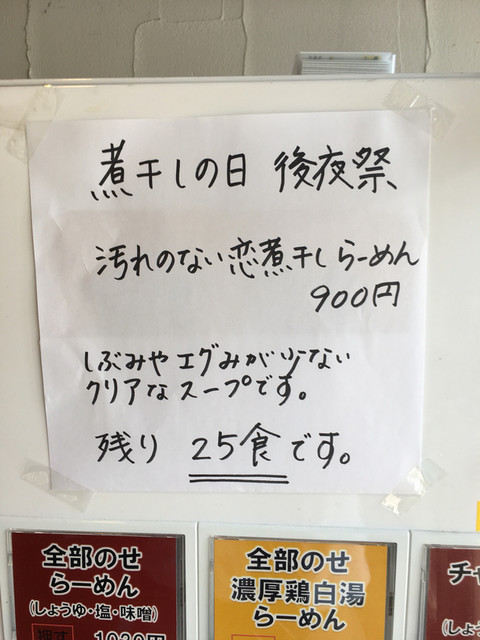 煮干しの日 後夜祭
汚れのない恋煮干しらーめん
900円
しぶみやエグみが少ない
クリアなスープです。
残り 25食です。
全部のせ
らーめん
(しょうゆ・塩・味噌)
押す 1030円
全部のせ
濃厚鶏白湯
らーめん
チャ
(しょ